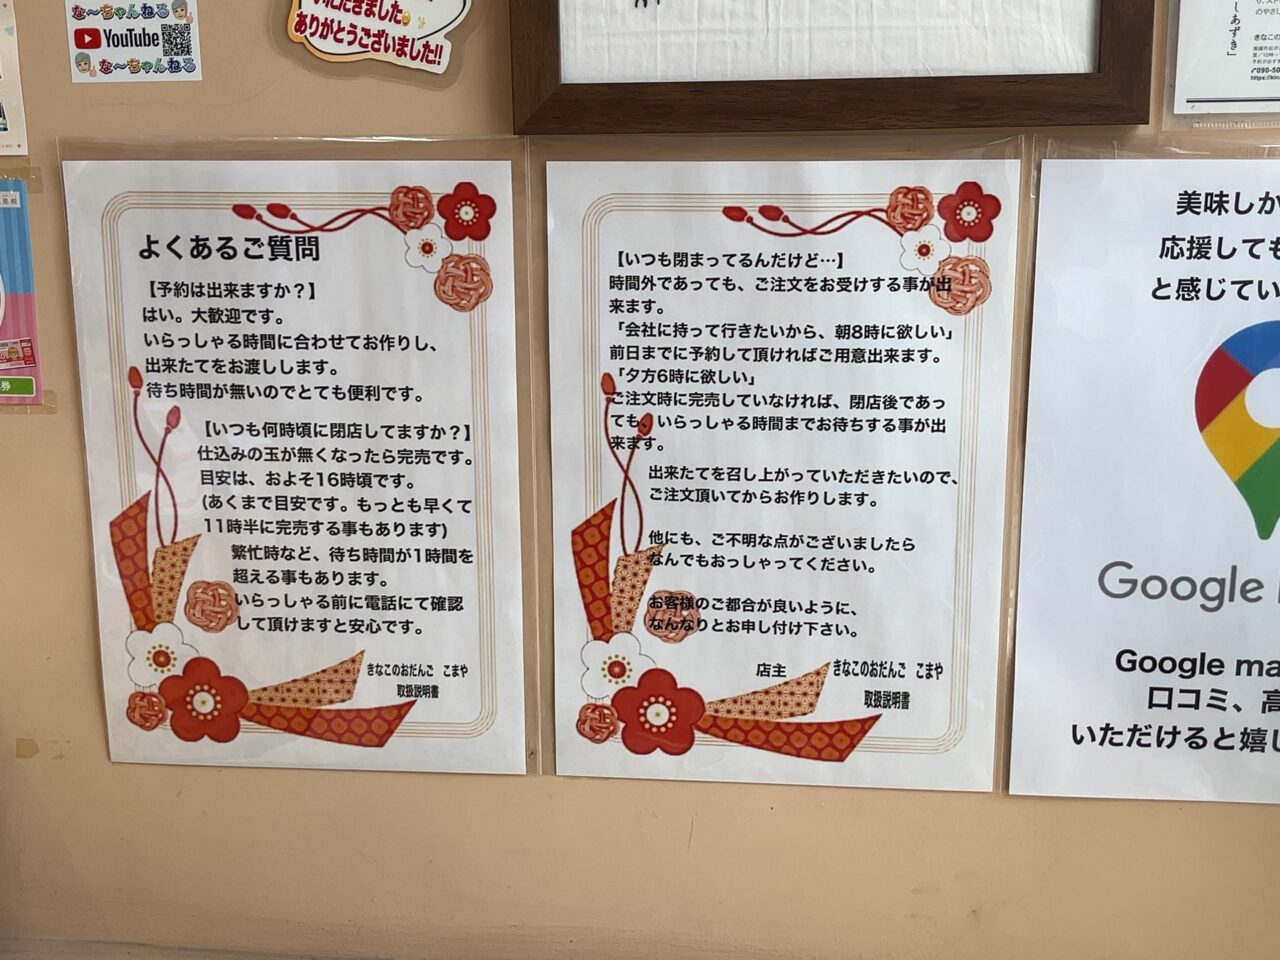 な〜ちゃんねる
YouTube
な〜ちゃんねる
いただきました。
ありがとうございました!!
しあずき」
きなこの
090-50
よくあるご質問
【予約は出来ますか？】
はい。大歓迎です。
いらっしゃる時間に合わせてお作りし、
出来たてをお渡しします。
待ち時間が無いのでとても便利です。
【いつも何時頃に閉店してますか？】
仕込みの玉が無くなったら完売です。
目安は、およそ16時頃です。
(あくまで目安です。もっとも早くて
11時半に完売する事もあります)
繁忙時など、待ち時間が1時間を
超える事もあります。
いらっしゃる前に電話にて確認
して頂けますと安心です。
きなこのおだんご　こまや
取扱説明書
【いつも閉まってるんだけど…】
時間外であっても、ご注文をお受けする事が出
来ます。
「会社に持って行きたいから、朝8時に欲しい」
前日までに予約して頂ければご用意出来ます。
「夕方6時に欲しい」
ご注文時に完売していなければ、閉店後であっ
ても、いらっしゃる時間までお待ちする事が出
来ます。
出来たてを召し上がっていただきたいので、
ご注文頂いてからお作りします。
他にも、ご不明な点がございましたら
なんでもおっしゃってください。
お客様のご都合が良いように、
なんなりとお申し付け下さい。
店主
きなこのおだんご　こまや
取扱説明書
美味しか
応援しても
と感じてい
Google
Google ma
口コミ、高
いただけると嬉し
券